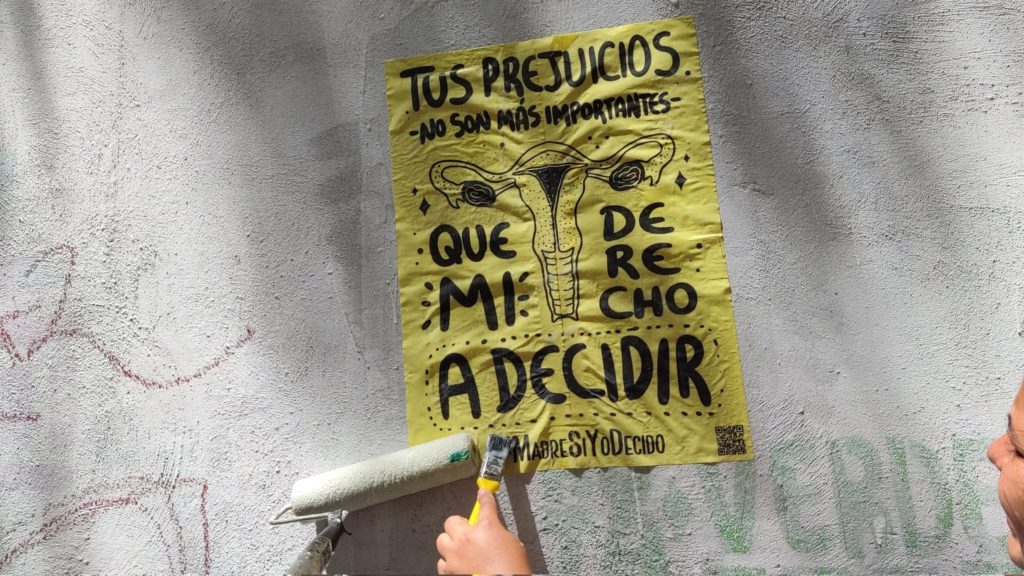 TUS PREJUICIOS.
-NO SON MÁS IMPORTANTES-
QUE
MI
DE
RE
CHO
A DECIDIR
MADRESIYODECIDO
VERDE